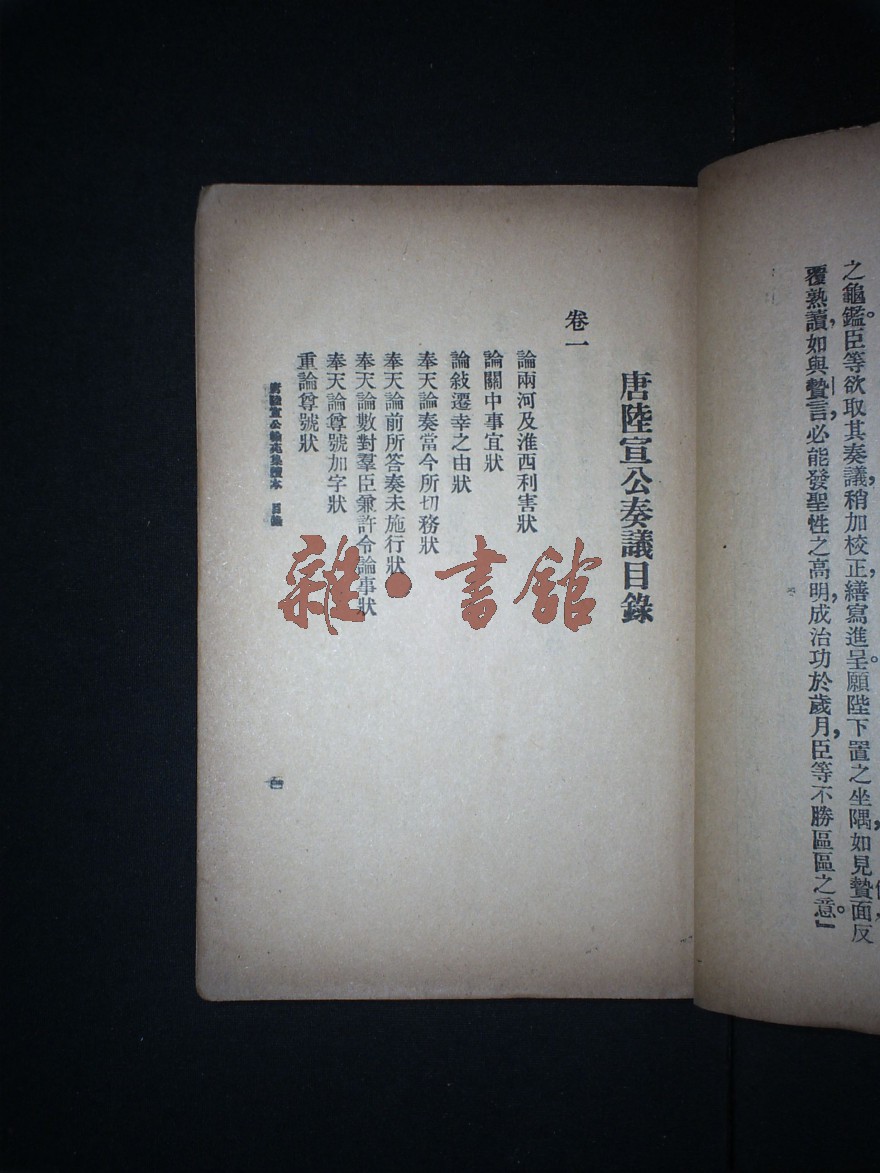 之龜鑑。臣等欲取其奏議，稍加校正，繕寫進呈。願陛下置之坐隅，如見贄面，反
覆熟讀，如與贄言，必能發聖性之高明，成治功於歲月。臣等不勝區區之意。』
唐陸宣公奏議目錄
卷一
論兩河及淮西利害狀
論關中事宜狀
論敍遷幸之由狀
奉天論奏當今所切務狀
奉天論前所答奏未施行狀
奉天論數對羣臣兼許令論事狀
奉天論尊號加字狀
重論尊號狀
唐陸宣公翰苑集讀本 目錄
雜·書館